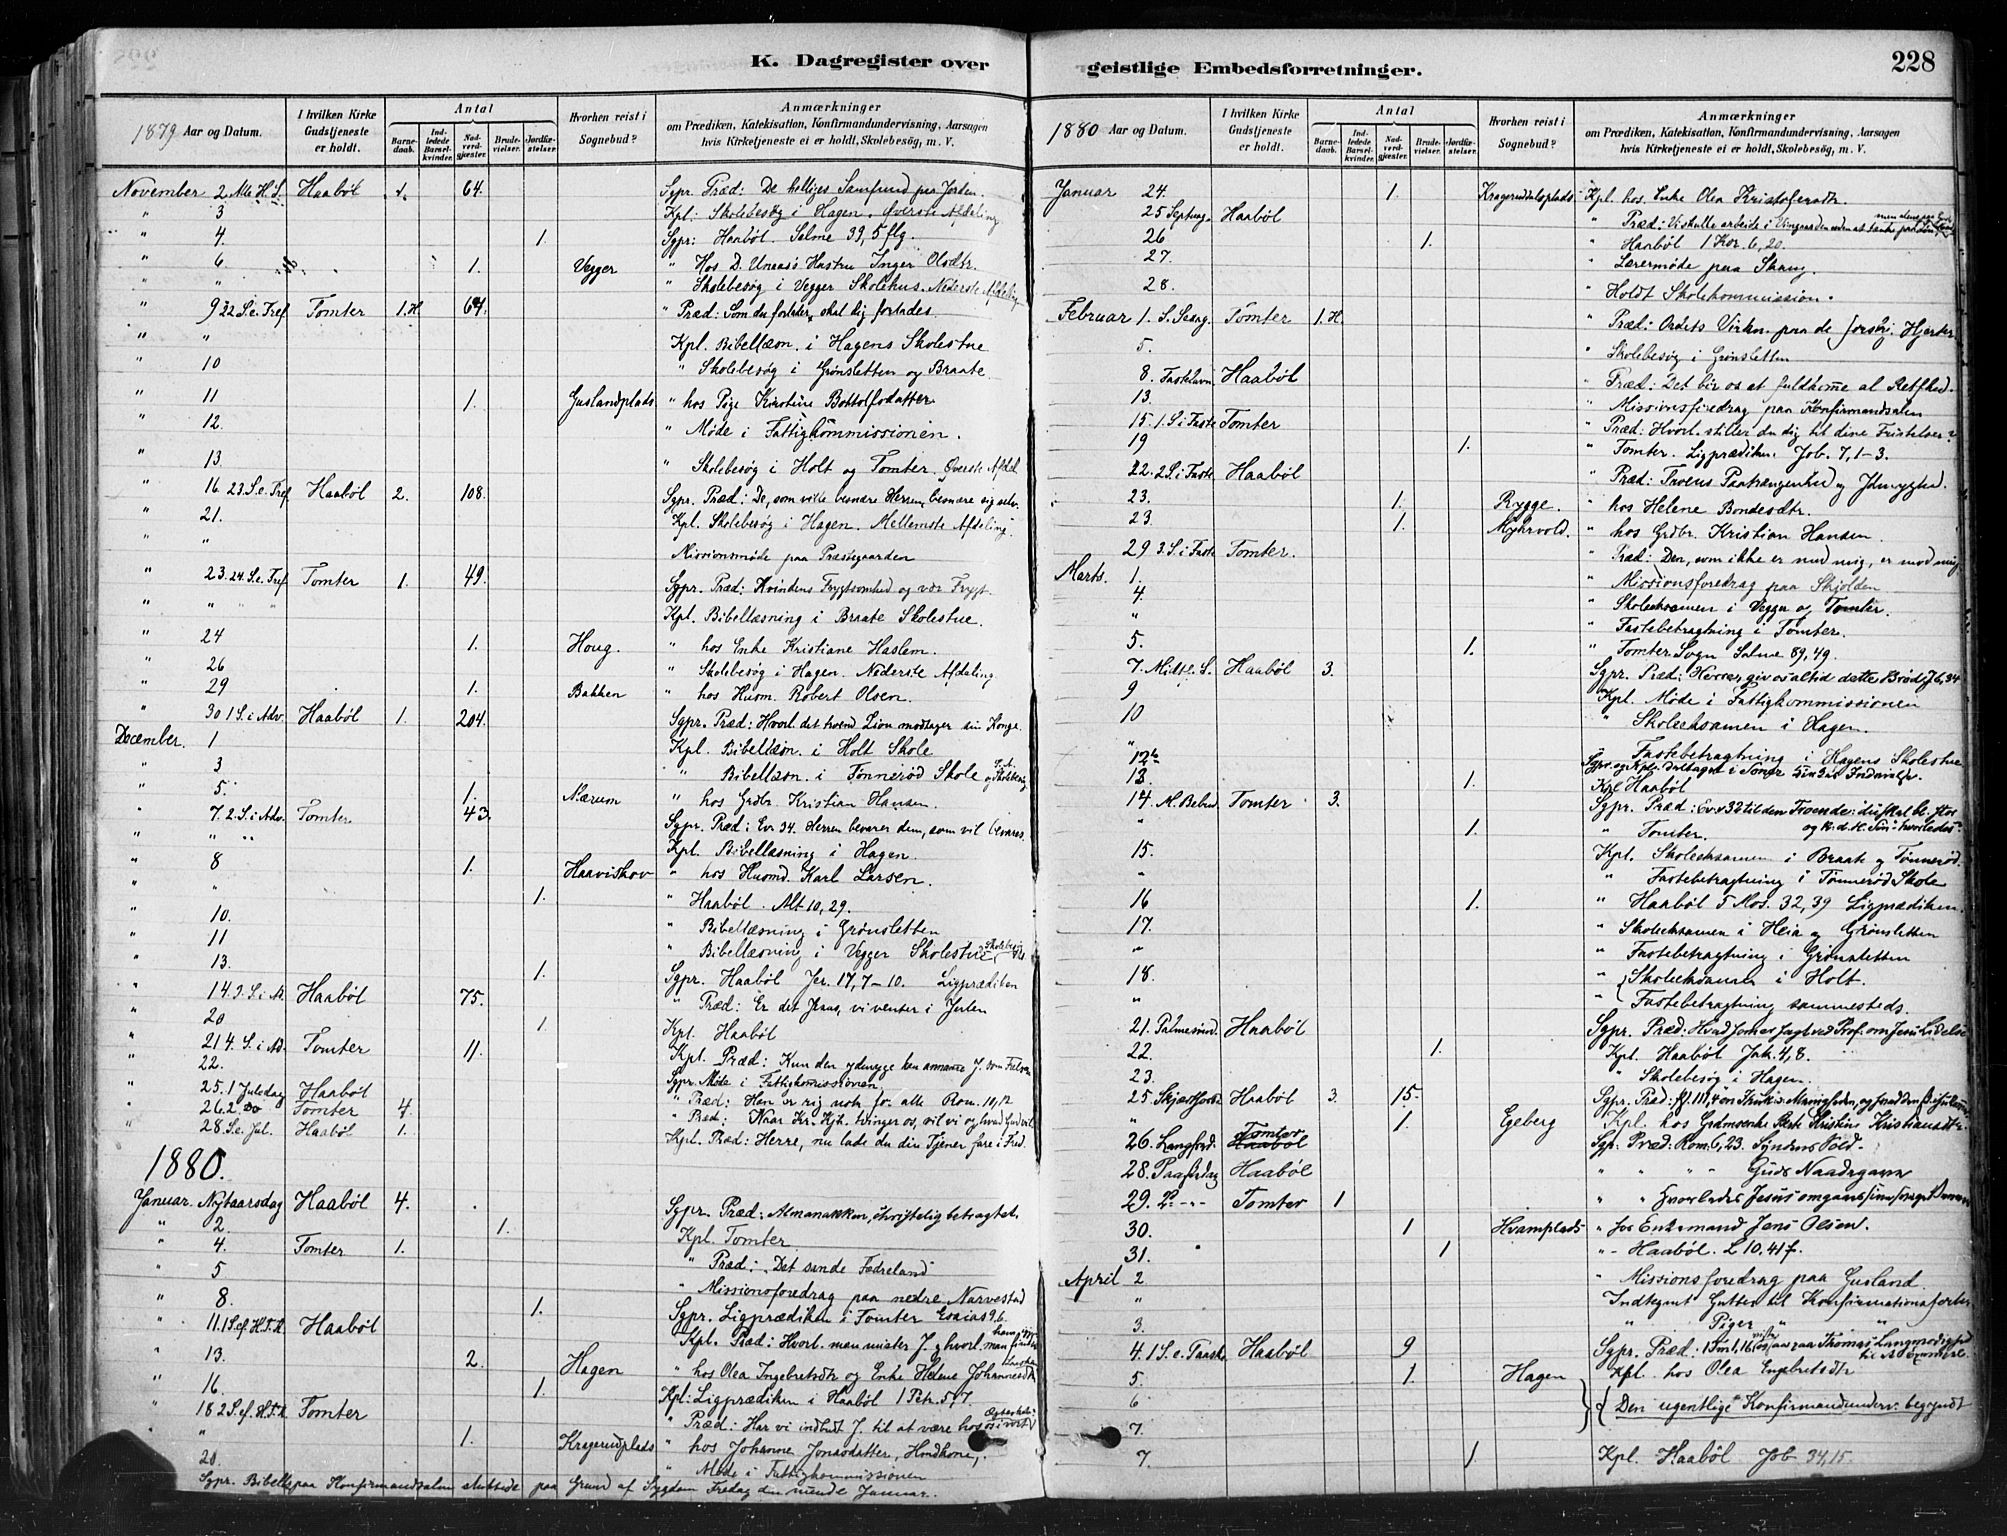 K. Dagregister over
1879 Aar og Datum. I hvilken Kirke Gudstjeneste er holdt. Antal Barnedaab. Indledede Barselkvinder. Nadverdgjester. Brudevielser. Jordfæstelser. Hvorhen reist i Sognebud? Anmærkninger om Prædiken, Katekisation, Konfirmandundervisning, Aarsagen hvis Kirketjeneste ei er holdt, Skolebesøg, m. V.
November 2 Alle H. S. Haabøl 1. 64. Sgpr. Præd: De helliges Samfund paa Jorden.
" 3 Kpl. Skolebesøg i Hagen. Øverste Afdeling
" 4. 1. Sgpr: Haabøl. Salme 39, 5 flg.
" 6 1. Vegger " Hos D. Hustru Inger Olsdtr.
" " " Skolebesøg i Vegger Skolehus. Nederste Afdeling
" 9 22 S. e. Tref Tomter 1. H. 64. " Præd: Som du forlader, skal dig forlades
" " Kpl. Bibellæsn. i Hagens Skolestue
10 " Skolebesøg i Grønsletten og Braate.
" 11 1. Guslandplads " hos Pige Kirstine Bottolfsdatter
" 12. " Møde i Fattigkommissionen.
" 13. " Skolebesøg i Holt og Tomter. Øverste Afdel
" 16. 23. S. e. Tref Haabøl 2. 108. Sgpr. Præd: De, som ville besnære Herren, besnære sig selv.
" 21. Kpl. Skolebesøg i Hagen. Mellemste Afdeling.
" " Missionsmøde paa Præstegaarden
" 23. 24. S. e. Tref Tomter 1. 49. Sgpr. Præd: Kvindens Frygtsomhed og vor Frygt.
" " " Kpl. Bibellæsning i Braate Skolestue.
" 24 1. Houg. " hos Enke Kristiane Haslem.
" 26 " Skolebesøg i Hagen. Nederste Afdeling
" 29 1. Bakken " hos Husm. Robert Olsen.
" 30 1 S. i Adv. Haabøl 1. 204. Sgpr. Præd: Hvorl. det troend. Zion modtager sin Konge.
December. 1 Kpl. Bibellæsn. i Holt Skole
" 3 " Bibellæsn. i Tønnerød Skole
" 5. 1. Nærum " hos Grdbr. Kristian Hansen.
" 7. 2. S. i Adv. Tomter 43. Sgpr. Præd: Ev. 34. Herren bevarer dem, som vil bevares.
" " " Kpl. Bibellæsning i Hagen.
" 8 1. Haaviskov " hos Husmd. Karl Larsen.
" " 1. " Haabøl. Alt 10, 29.
" 10. " Bibellæsning i Grønsletten
" 11 " Bibellæsning i Vegger Skolestue
" 13. 1. Sgpr. Haabøl Jer. 17, 7-10. Ligprædiken
" 14. 3. S. i A. Haabøl 75. " Præd: Er det Jesus, vi venter i Julen
" 20 1. Kpl. Haabøl
" 21 4. S. i Ad. Tomter 11. Kpl. Præd: Kun den ydmyge kan annamme J. som Frelser
" 22. Sgpr. Møde i Fattigkomissionen
" 25. 1 Juledag Haabøl " Præd: Han er rig nok for alle Rom. 10, 12
" 26 2. Do Tomter 4. " Præd: Naar Kr. Kjh. tvinger os, vil vi og hvad Gud vil
" 28 S. e. Jul. Haabøl 1. Kpl. Præd: Herre, nu lade du din Tjener fare i Fred.
1880.
Januar Nytaarsdag Haabøl 4. Sgpr. Præd: Almanakken, christelig betragtet.
" 2 1. Kpl. Tomter
" 4. Tomter 1. " Præd: Det sande Fædreland
" 5 " Missionsforedrag paa nedre Narvestad
" 8. 1. Sgpr. Ligprædiken i Tomter Esaias 9. 6.
" 11. 1 S. ef. H. T. K. Haabøl Kpl. Præd: Hvorl. man mister J. og hvorl. man finder ham
" 13. 2. Hagen " hos Olea Ingebretsdtr og Enke Helene Johannesdtr
" 16. 1. Kpl: Ligprædiken i Haabøl 1 Petr. 5, 7.
" 18 2 S. ef. H. T. K. Tomter " Præd: Har vi indbudt J. til at være hos os i vort
" " 1. Kragerudplads " hos Johanne Jonasdatter, Hmdkone.
20. " Møde i Fattigkommissionen
Sgpr. Bibell. paa Konfirmandsalen sluttede paa Grund af Sygdom Fredag den niende Januar.
geistlige Embedsforretninger. 228
1880 Aar og Datum. I hvilken Kirke Gudstjeneste er holdt. Antal Barnedaab. Indledede Barselkvinder. Nadverdgjester. Brudevielser. Jordfæstelser. Hvorhen reist i Sognebud? Anmærkninger om Prædiken, Katekisation, Konfirmandundervisning, Aarsagen hvis Kirketjeneste ei er holdt, Skolebesøg, m. V.
Januar 24. 1. Kragerudalsplads Kpl. hos Enke Olea Kristofersdtr.
25 Septuag. Haabøl " Præd: Vi skulle arbeide i Vingaarden uden at tænke paa
26 1. " Haabøl 1 Kor. 6, 20.
27. " Lærermøde paa Skaug.
28. " Holdt Skolekommission.
Februar 1. S. Sexag. Tomter 1. H. " Præd: Ordets Virkn. paa de forskj. Hjerter
5. " Skolebesøg i Grønsletten
8. Fastelavn Haabøl " Præd: Det bør os at fuldkomme al Retfhed.
13. " Missionsforedrag paa Konfirmandsalen
15. 1. S i Faste Tomter " Præd: Hvorl. stiller du dig til dine Fristelser?
19 1. " Tomter. Ligprædiken Job. 7, 1-3.
22. 2 S. i Faste Haabøl " Præd: Troens Paatrængenhed og Ydmyghed.
23. 1. Rygge. " hos Helene Bondesdtr.
23 1. Myhrvold. " hos Grdbr. Kristian Hansen.
29 3. S. i Faste Tomter. Præd: Den, som ikke er med mig, er mod mig
Marts. 1. " Missionsforedrag paa Skjolden
4. " Skoleeksamen i Vegger og Tomter.
" " Fastebetragtning i Tomter.
5. 1. " Tomter Sogn Salme 89, 49.
7. Midfl. S. Haabøl 3. Sgpr. Præd: Herre, giv os altid dette Brød J 6, 34
9 Kpl. Møde i Fattigkommissionen
10 " Skoleeksamen i Hagen.
" " Fastebetragtning i Hagens Skolestue
12te Sgpr. og Kpl. deltaget i
13. 1. Kpl Haabøl
14. M. Bebud. Tomter 3. Sgpr. Præd: Ev. v 32 til den Troende: du skal bl. stor og k. d. H. Søn - hvorledes?
" 1. " Tomter.
15. Kpl. Skoleeksamen i Braate og Tønnerød.
" " Fastebetragtning i Tønnerød Skole
16 1. " Haabøl 5 Mos. 32, 39 Ligprædiken.
17. " Skoleeksamen i Heia og Grønsletten
" " Fastebetragtning i Grønsletten
18. " Skoleeksamen i Holt.
" " Fastebetragtning sammesteds.
21. Palmesønd. Haabøl Sgpr. Præd: Hvad Jomer sagt ved Prof. om Jesu Lidelse
22. 1. Kpl. Haabøl Jak. 4, 8.
23. " Skolebesøg i Hagen.
25. Skjærthorsd. Haabøl 3. 15. Sgpr. Præd: fl. 111, 4
" 1. Egeberg Kpl. hos Grdmsenke Berte Kristine Kristiansdtr
26. Langfred. Tomter Haabøl Sgpr. Præd: Rom. 6, 23. Syndens Sold.
28. Paaskedag Haabøl " " " Guds Naadegave
29. 2den " Tomter 1 " " Hvorledes Jesus omgaas
30. 1 Hvamplads " hos Enkemand Jens Olsen.
31. 1 " Haabøl. L 10. 41 f.
April 2 " Missionsforedrag paa Gusland
" Indtegnet Gutter til Konfirmationsforber.
3. " Piger " "
4. 1 S. e. Paaske Haabøl 9 Sgpr. Præd. 1 Tim 1, 16 viser os paa Thomas Langmodighed
5. 1. Hagen Kpl. hos Olea Engebretsdtr
6 { Den egentlige Konfirmandunderv. begyndt
7.
7. 1 Kpl. Haabøl Job 34, 15.